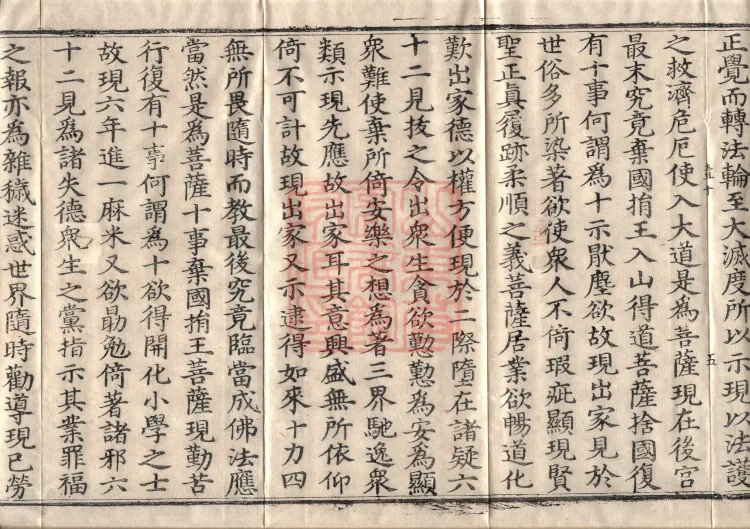 正覺而轉法輪至大滅度所以示現以法護
之救濟危厄使入大道是為菩薩現在後宮
最末究竟棄國捐王入山得道菩薩捨國復
有十事何謂為十示猒塵欲故現出家見於
世俗多所染著欲使衆人不倚瑕疵顯現賢
聖正真履跡柔順之義菩薩居業欲暢道化
歎出家德以權方便現於二際墮在諸疑六
十二見拔之令出衆生貪欲懃懃為安為顯
衆難使棄所倚安樂之想為著三界馳逸衆
類示現先應故出家耳其意興盛無所依仰
倚不可計故現出家又示逮得如來十力四
無所畏隨時而教最後究竟臨當成佛法應
當然是為菩薩十事棄國捐王菩薩現勤苦
行復有十事何謂為十欲得開化小學之士
故現六年進一麻米又欲勗勉倚著諸邪六
十二見為諸失德衆生之黨指示其業罪福
之報亦為雜穢迷惑世界隨時勸導現已勞
五